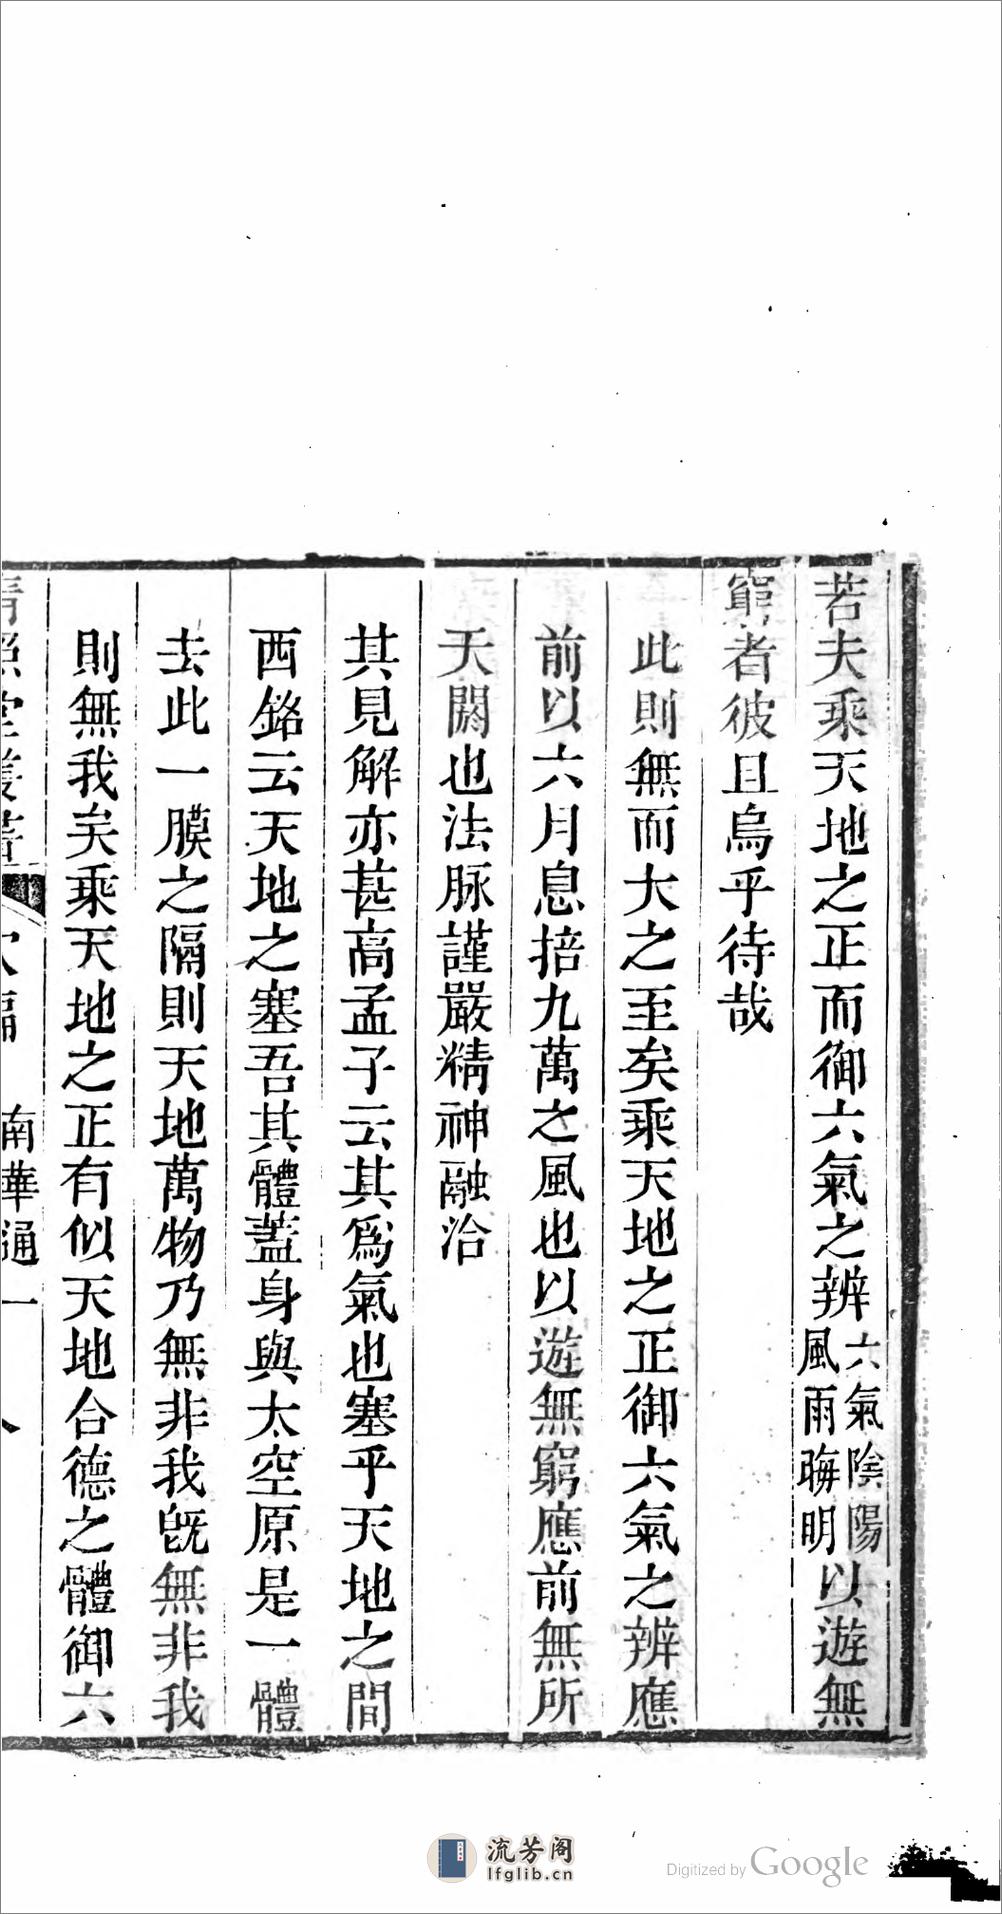 若夫乘天地之正而御六氣之辨六氣陰陽風雨晦明以遊無
窮者彼且烏乎待哉
此則無而大之至矣乘天地之正御六氣之辨應
前以六月息掊九萬之風也以遊無窮應前無所
天閼也法脉謹嚴精神融洽
其見解亦甚高孟子云其爲氣也塞乎天地之間
西銘云天地之塞吾其體蓋身與太空原是一體
去此一膜之隔則天地萬物乃無非我旣無非我
則無我矣乘天地之正有似天地合德之體御六
南華通一
流芳阁
lfglib.cn
Digitized by Google